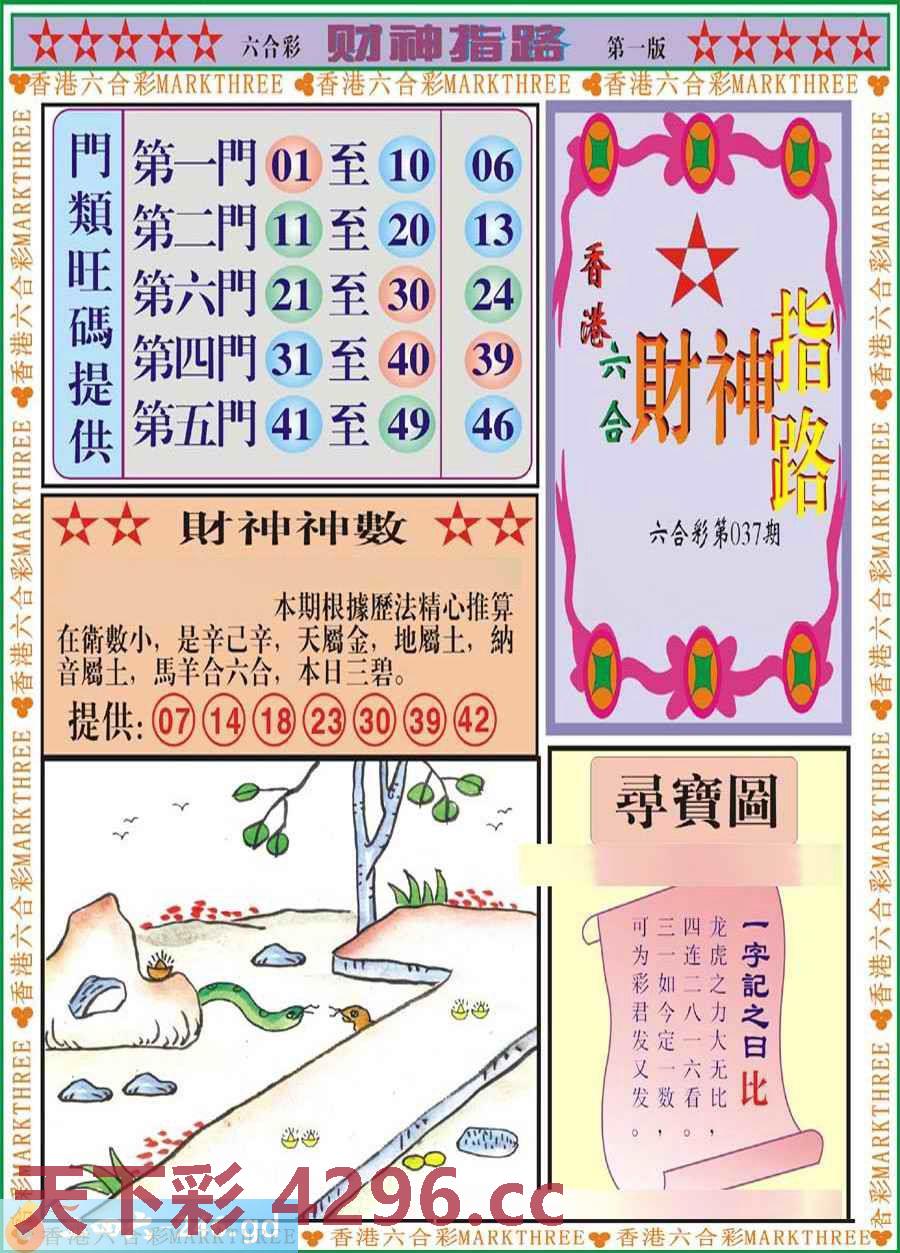 六合彩 财神指路 第一版
香港六合彩MARKTHREE 香港六合彩MARKTHREE 香港六合彩MARKTHREE
門類旺碼提供
第一門 01 至 10 06
第二門 11 至 20 13
第六門 21 至 30 24
第四門 31 至 40 39
第五門 41 至 49 46
香港六合
財神指路
六合彩第037期
財神神數
本期根據歷法精心推算
在衛數小，是辛己辛，天屬金，地屬土，納
音屬土，馬羊合六合，本日三碧。
提供: 07 14 18 23 30 39 42
尋寶圖
一字記之曰比
龙虎之力大无比，
四连二八一六看。
三一如今定一数，
可为彩君发又发。
香港六合彩MARKTHREE 香港六合彩MARKTHREE 香港六合彩MARKTHREE 香港六合彩MARKTHREE
香港六合彩MARKTHREE 香港六合彩MARKTHREE 香港六合彩MARKTHREE 香港六合彩MARKTHREE
天下彩 4296.cc
香港六合彩MARKTHREE 香港六合彩MARKTHREE 香港六合彩MARKTHREE